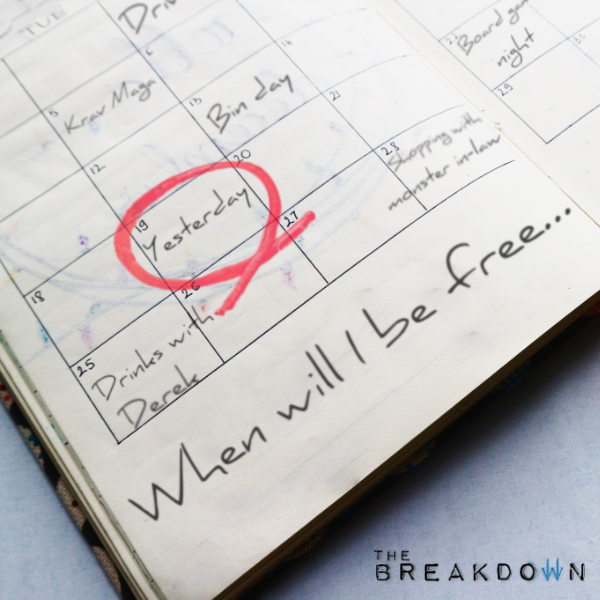 TUE
Drin
5
Krav Maga
6
12
13
Bin day
14
18
19
Yesterday
20
21
25
Drinks with
Derek
26
27
28
Shopping with
monster in-law
22
Board gam
night
29
30
When will I be free...
THE
BREAKDOWN